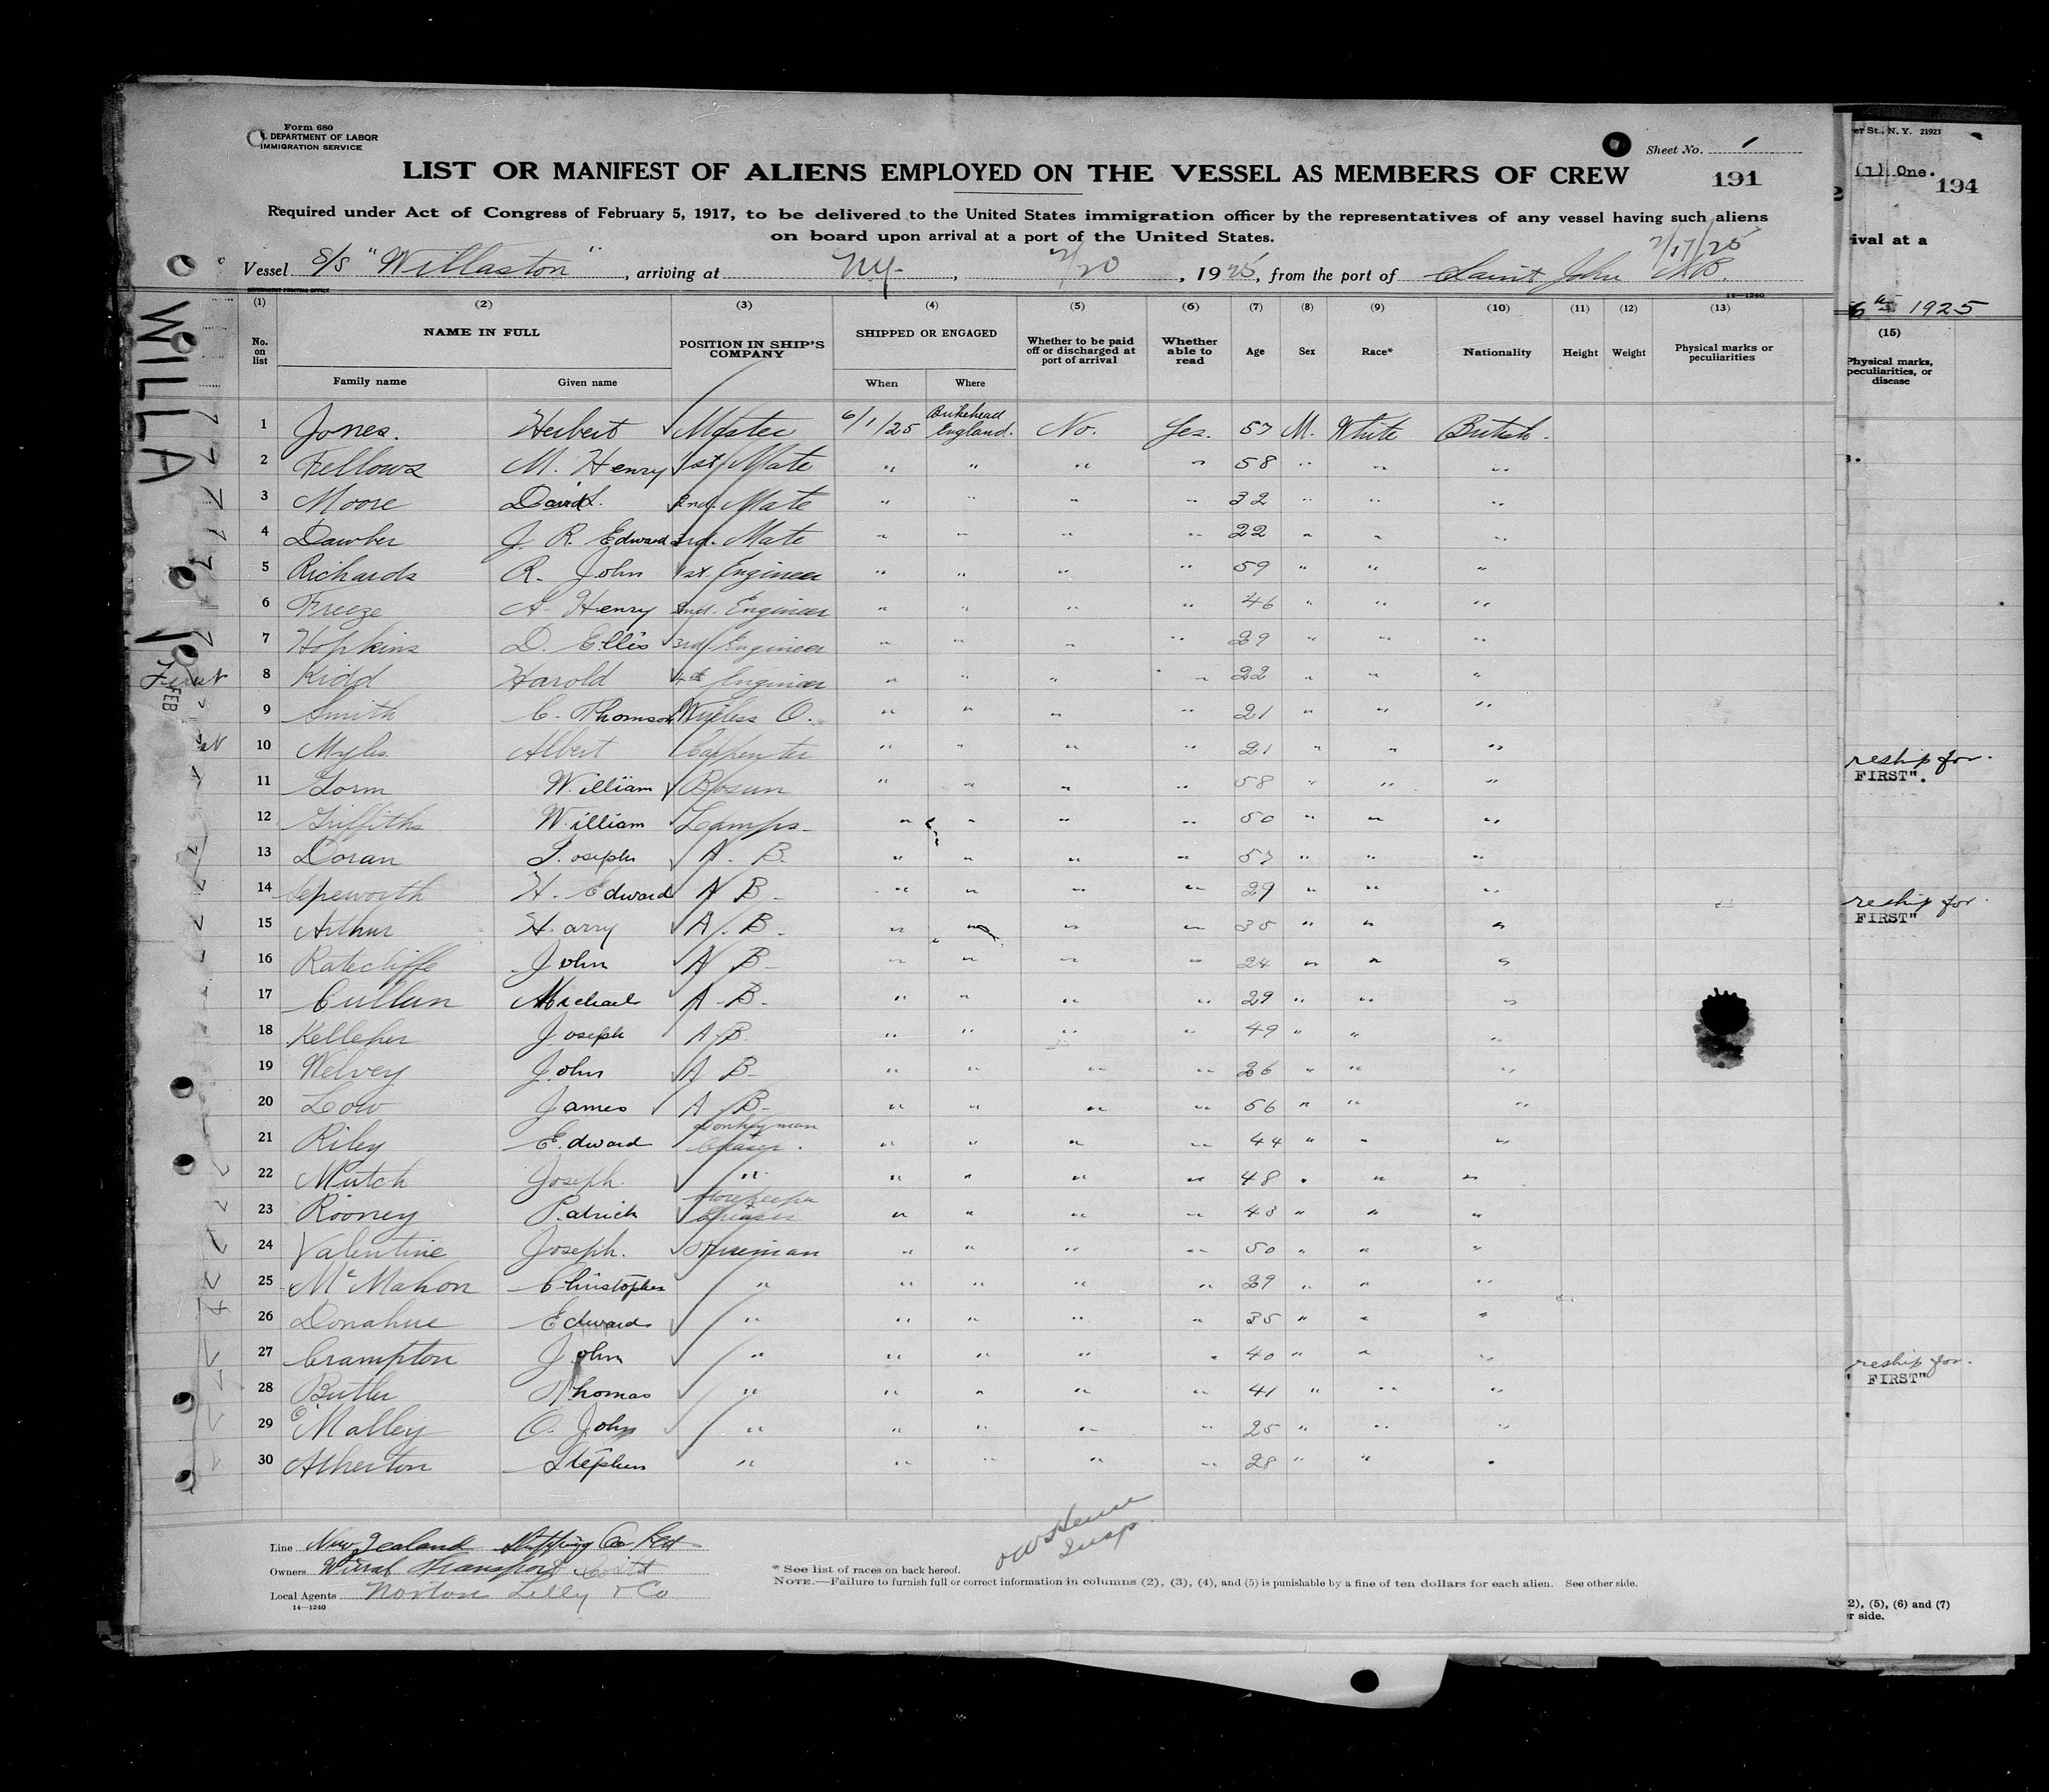 Form 680
DEPARTMENT OF LABOR
IMMIGRATION SERVICE
Sheet No. 1
LIST OR MANIFEST OF ALIENS EMPLOYED ON THE VESSEL AS MEMBERS OF CREW
191
Required under Act of Congress of February 5, 1917, to be delivered to the United States immigration officer by the representatives of any vessel having such aliens
on board upon arrival at a port of the United States.
2/17/25
Vessel S/S "Willaston", arriving at NY-, 2/20, 1925, from the port of Saint John N.B.
GOVERNMENT PRINTING OFFICE
14—1240
(1) (2) (3) (4) (5) (6) (7) (8) (9) (10) (11) (12) (13)
No. on list NAME IN FULL POSITION IN SHIP'S COMPANY SHIPPED OR ENGAGED Whether to be paid off or discharged at port of arrival Whether able to read Age Sex Race* Nationality Height Weight Physical marks or peculiarities
Family name Given name When Where
1 Jones. Herbert Master 6/1/25 Birkehead England. No. Yes. 57 M. White British.
2 Fellows M. Henry 1st Mate " " " " 58 " " "
3 Moore David S. 2nd. Mate " " " " 32 " " "
4 Dawber J. R. Edward 3rd. Mate " " " " 22 " " "
5 Richards R. John 1st. Engineer " " " " 59 " " "
6 Freeze A. Henry 2nd. Engineer " " " " 46 " " "
7 Hopkins D. Ellis 3rd. Engineer " " " " 29 " " "
8 Kidd Harold 4th Engineer " " " " 22 " " "
9 Smith C. Thomson Wireless O. " " " " 21 " " "
10 Myles Albert Carpenter " " " " 21 " " "
11 Gorm William Bosun " " " " 58 " " "
12 Griffiths William Lamps- " " " " 50 " " "
13 Doran Joseph A. B. " " " " 57 " " "
14 Sepeworth H. Edward A B- " " " " 29 " " "
15 Arthur Harry A. B. " " " " 35 " " "
16 Ratecliffe John A B- " " " " 24 " " "
17 Cullun Michael A-B- " " " " 29 " " "
18 Kelleher Joseph A B. " " " " 49 " " "
19 Welvey John A B- " " " " 26 " " "
20 Low James A B- " " " " 56 " " "
21 Riley Edward Donkeyman Greaser. " " " " 44 " " "
22 Mutch Joseph. " " " " " 48 " " "
23 Rooney Patrick Storekeeper Greaser " " " " 43 " " "
24 Valentine Joseph. Fireman " " " " 50 " " "
25 McMahon Christopher " " " " " 29 " " "
26 Donahue Edward " " " " " 35 " " "
27 Crampton John " " " " " 40 " " "
28 Butler Thomas " " " " " 41 " " "
29 O'Malley O. John " " " " " 25 " " "
30 Atherton Stephen " " " " " 28 " " "
Line New Zealand Shipping Co Ltd
Owners Wirral Transport Co Ltd
Local Agents Norton Lilly & Co
14—1240
Insp.
* See list of races on back hereof.
NOTE.—Failure to furnish full or correct information in columns (2), (3), (4), and (5) is punishable by a fine of ten dollars for each alien. See other side.
WILLA
First
FEB
er St., N. Y. 21923
(1) One.
194
ival at a
6th 1925
(15)
Physical marks,
peculiarities, or
disease
reship for
FIRST".
reship for
FIRST"
reship for.
FIRST"
2), (5), (6) and (7)
r side.